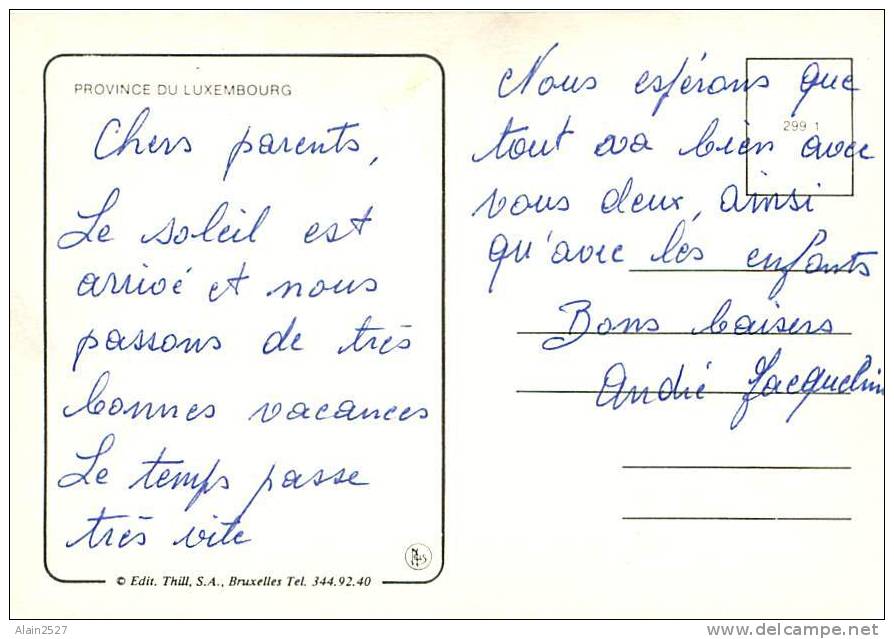 PROVINCE DU LUXEMBOURG
Chers parents,
Le soleil est
arrivé et nous
passons de très
bonnes vacances
Le temps passe
très vite
© Edit. Thill, S.A., Bruxelles Tel. 344.92.40
Nous espérons que
299 1
tout va bien avec
vous deux, ainsi
qu'avec les enfants
Bons baisers
André Jacquelin
Alain2527
www.delcampe.net